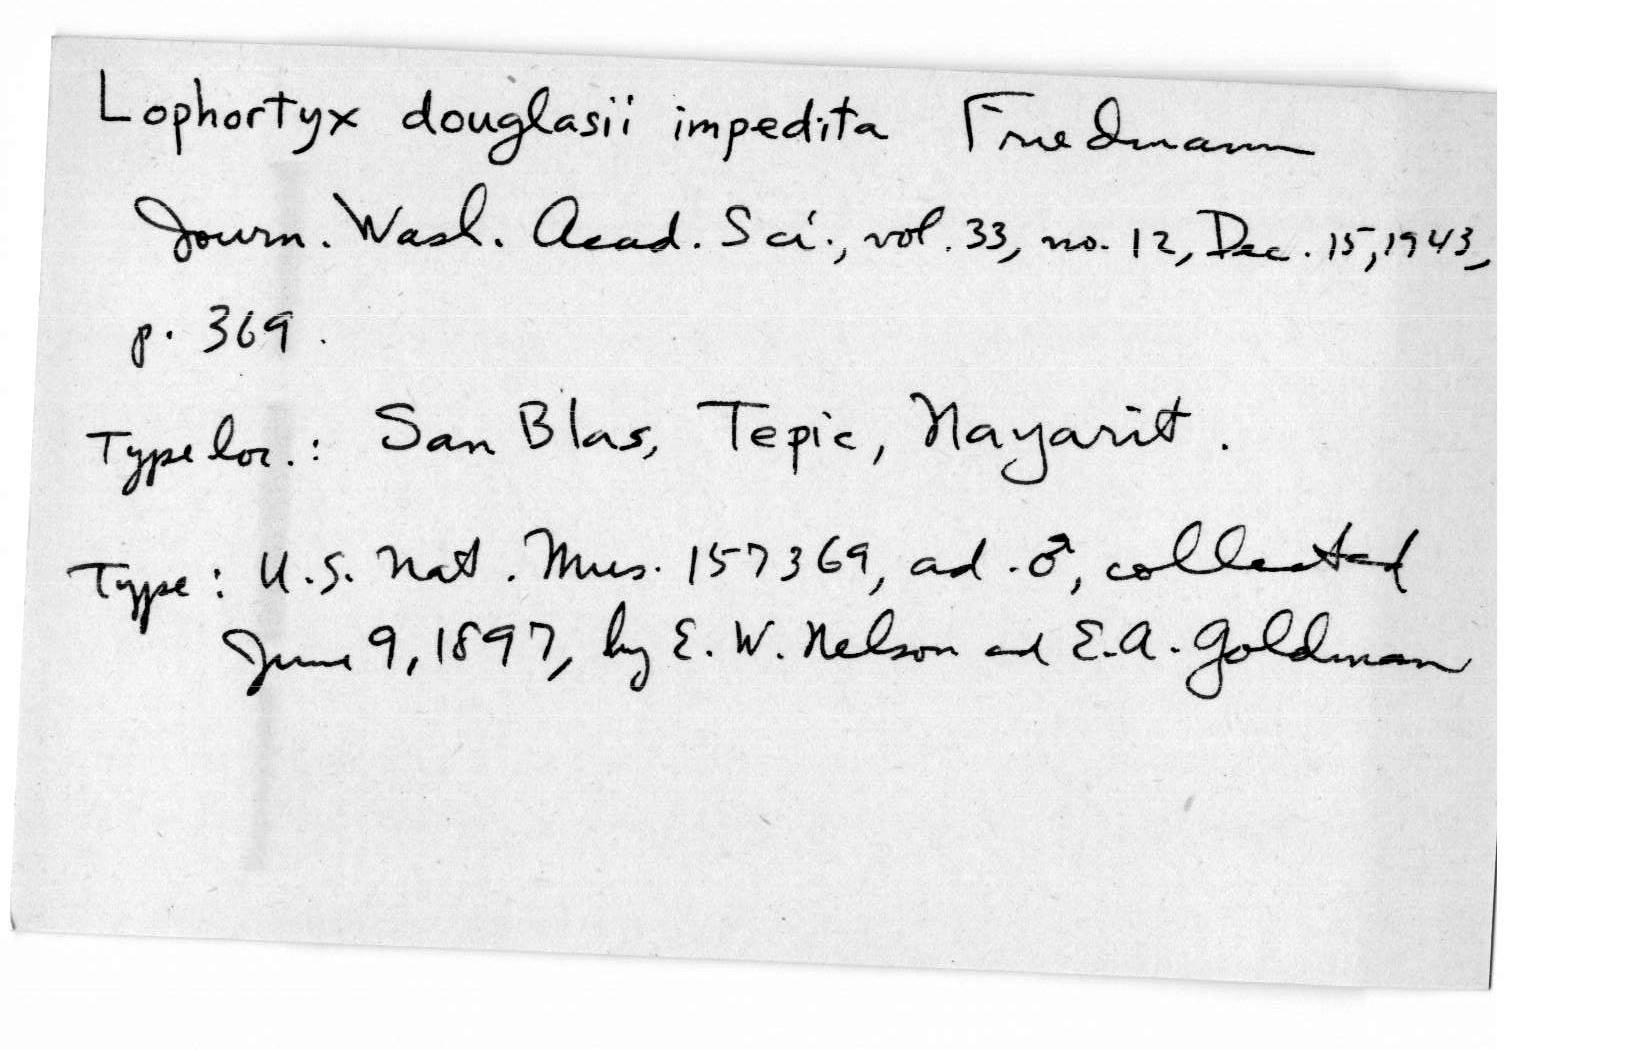 Lophortyx douglasii impedita Friedmann
Journ. Wash. Acad. Sci., vol. 33, no. 12, Dec. 15, 1943,
p. 369.
Type loc.: San Blas, Tepic, Nayarit.
Type: U.S. Nat. Mus. 157369, ad. ♂, collected
June 9, 1897, by E. W. Nelson and E.A. Goldman